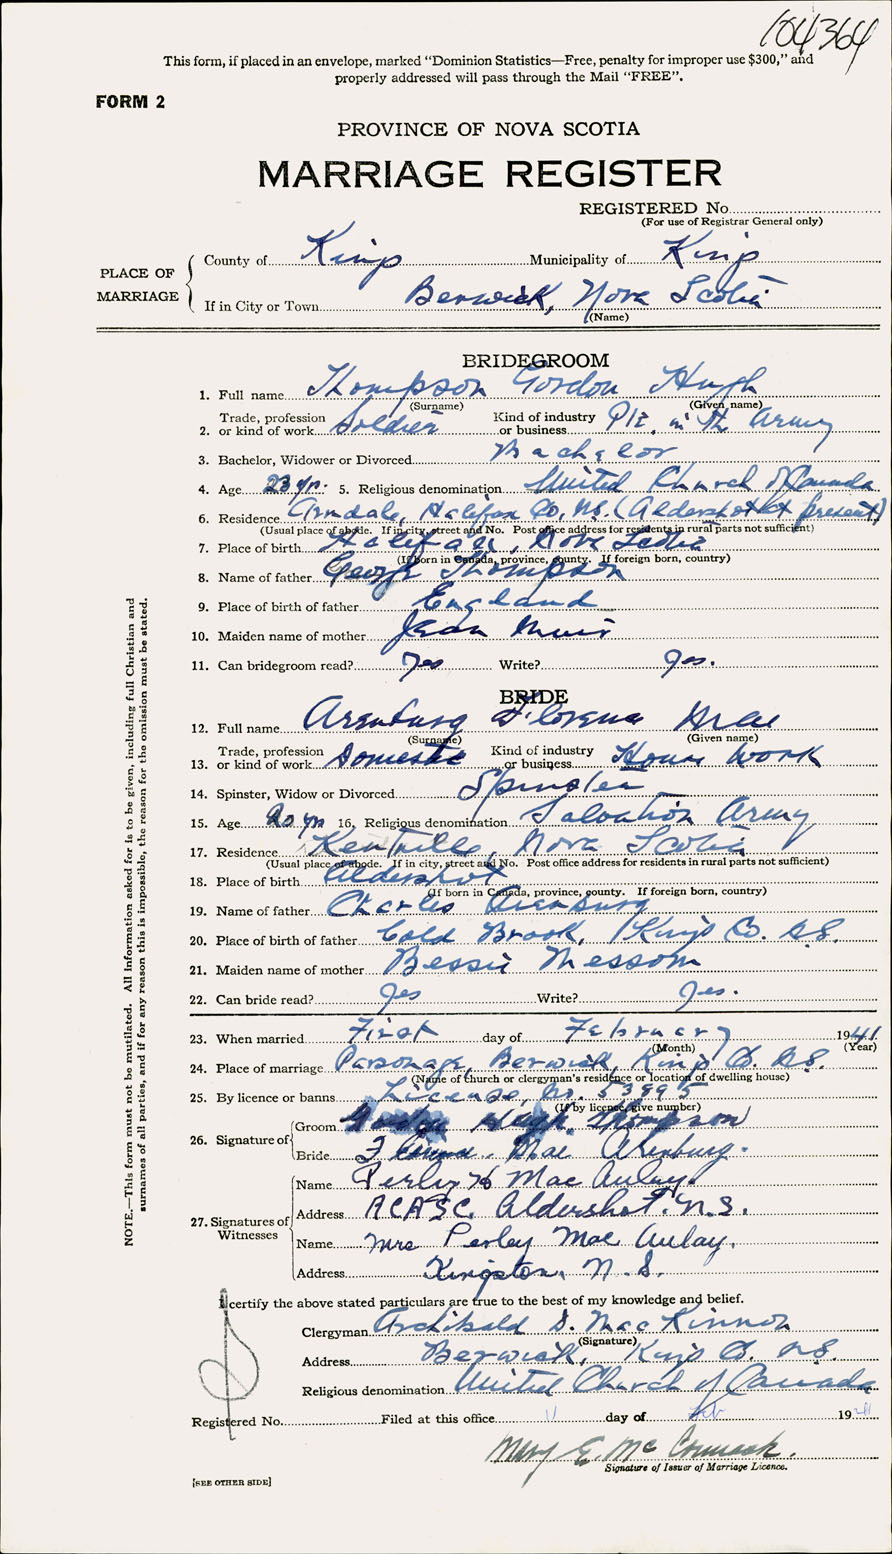 104364
This form, if placed in an envelope, marked "Dominion Statistics—Free, penalty for improper use $300," and
properly addressed will pass through the Mail "FREE".
FORM 2
PROVINCE OF NOVA SCOTIA
MARRIAGE REGISTER
REGISTERED No.
(For use of Registrar General only)
PLACE OF MARRIAGE
County of Kings Municipality of Kings
If in City or Town Berwick, Nova Scotia
(Name)
BRIDEGROOM
1. Full name Thompson Gordon Hugh
(Surname) (Given name)
2. Trade, profession or kind of work Soldier Kind of industry or business Pte. in the Army
3. Bachelor, Widower or Divorced Bachelor
4. Age 23 yr. 5. Religious denomination United Church of Canada
6. Residence Armdale, Halifax Co, N.S. (Aldershot at present)
(Usual place of abode. If in city, street and No. Post office address for residents in rural parts not sufficient)
7. Place of birth Halifax, Nova Scotia
(If born in Canada, province, county. If foreign born, country)
8. Name of father George Thompson
9. Place of birth of father England
10. Maiden name of mother Jean Muir
11. Can bridegroom read? Yes Write? Yes.
BRIDE
12. Full name Arenburg Florence Mae
(Surname) (Given name)
13. Trade, profession or kind of work Domestic Kind of industry or business House Work
14. Spinster, Widow or Divorced Spinster
15. Age 20 yr 16. Religious denomination Salvation Army
17. Residence Kentville, Nova Scotia
(Usual place of abode. If in city, street and No. Post office address for residents in rural parts not sufficient)
18. Place of birth Aldershot
(If born in Canada, province, county. If foreign born, country)
19. Name of father Charles Arenburg
20. Place of birth of father Cold Brook, Kings Co. N.S.
21. Maiden name of mother Bessie Messom
22. Can bride read? Yes Write? Yes.
23. When married First day of February 1941
(Month) (Year)
24. Place of marriage Parsonage, Berwick, Kings Co. N.S.
(Name of church or clergyman's residence or location of dwelling house)
25. By licence or banns License, No. 53995
(If by licence, give number)
26. Signature of Groom Gordon Hugh Thompson
Bride Florence Mae Arenburg.
27. Signatures of Witnesses
Name Perley H Mac Aulay.
Address RCASC. Aldershot. N.S.
Name Mrs Perley Mac Aulay.
Address Kingston, N.S.
I certify the above stated particulars are true to the best of my knowledge and belief.
Clergyman Archibald D. MacKinnon
(Signature)
Address Berwick, Kings Co. N.S.
Religious denomination United Church of Canada
Registered No. Filed at this office 11 day of Feb 1941
Mary E. McCormack.
Signature of Issuer of Marriage Licence.
[SEE OTHER SIDE]
NOTE.—This form must not be mutilated. All Information asked for is to be given, including full Christian and
surnames of all parties, and if for any reason this is impossible, the reason for the omission must be stated.